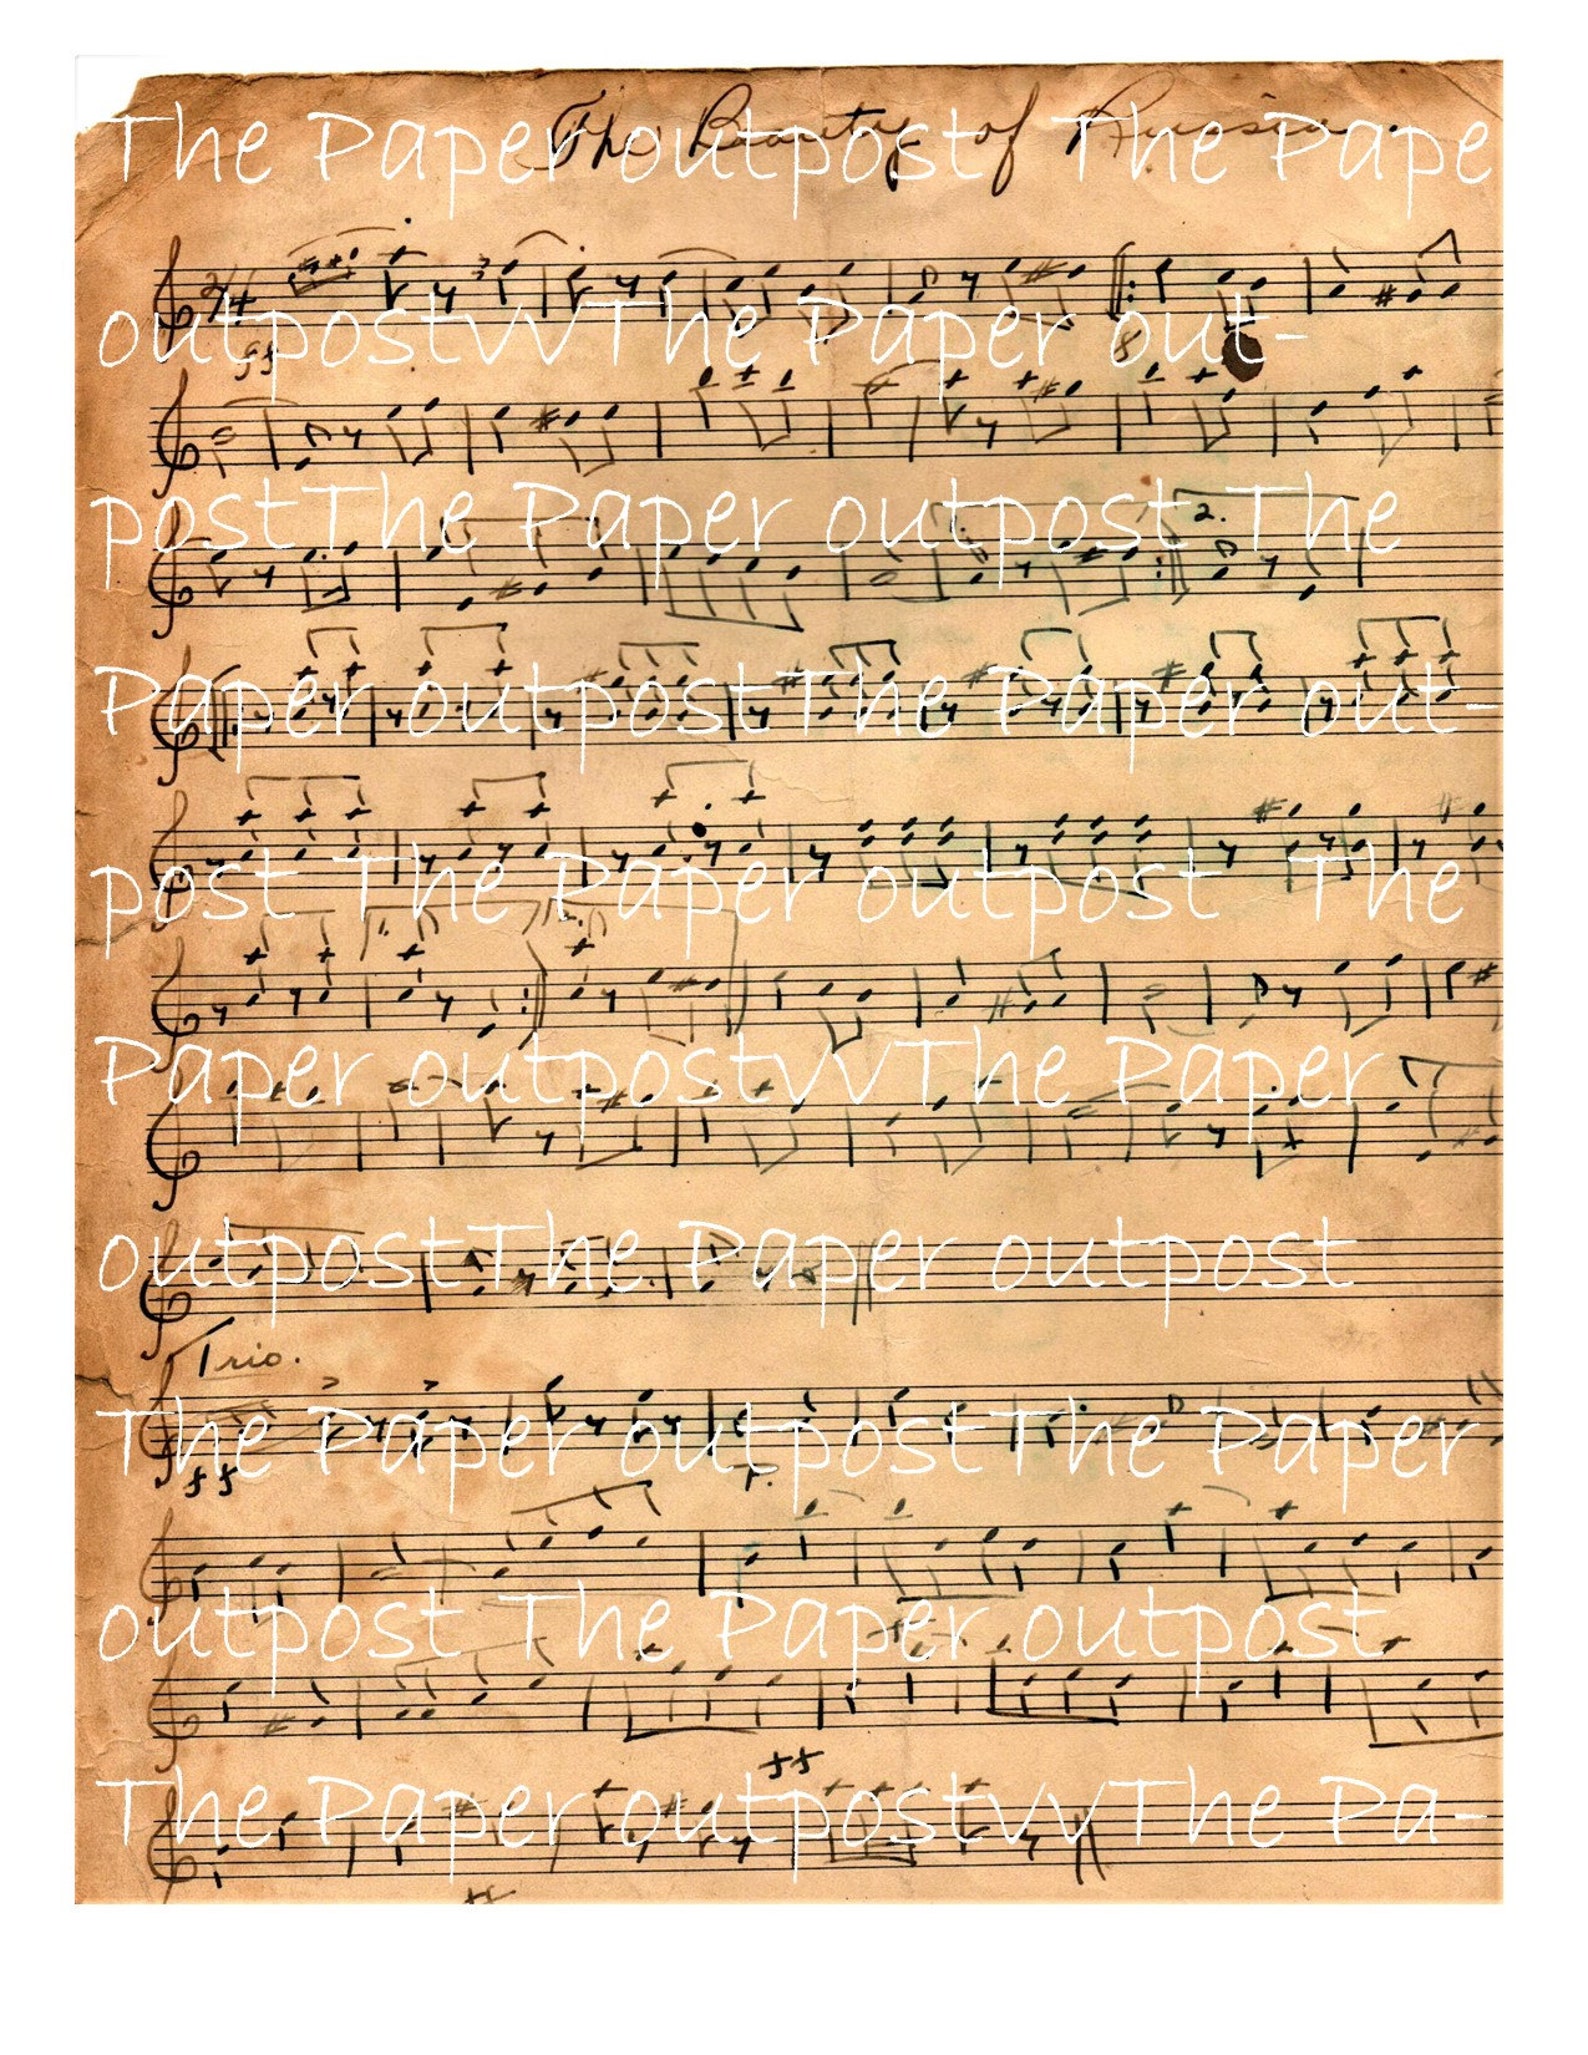 The Beauty of Russia.
The Paper outpost The Pape
2/4
ff
outpostvvThe Paper out-
8
postThe Paper outpost The
1.
2.
Paper outpostThe Paper out-
post The Paper outpost The
1.
2.
Paper outpostvvThe Paper
outpostThe Paper outpost
Trio.
The Paper outpostThe Paper
ff
P.
outpost The Paper outpost
ff
The Paper outpostvvThe Pa-